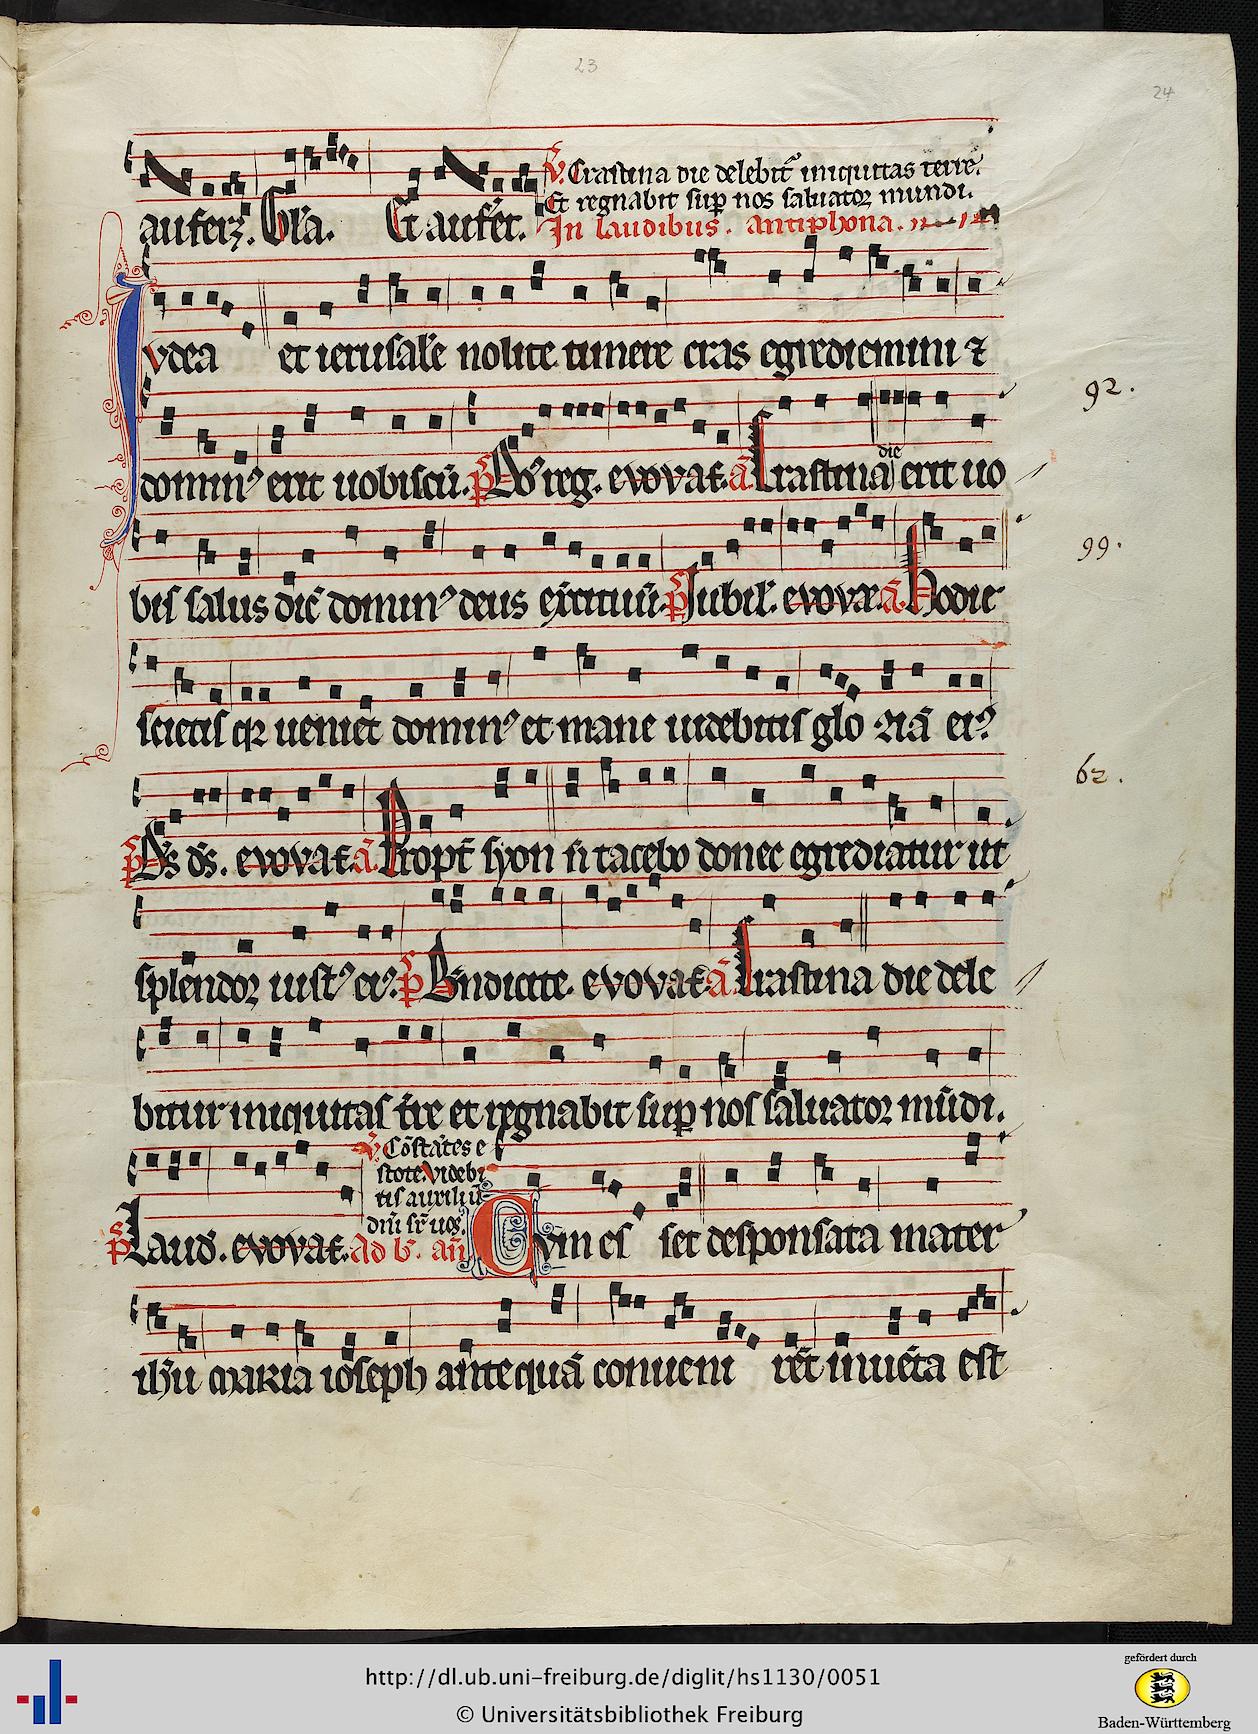 23
24
℣. Crastina die delebit᷒ iniquitas terre.
Et regnabit sup nos saluator mundi.
auferꝫ. Gl'a. Et aufer̄t. In laudibus. antiphona.
Iudea et ierusal'e nolite timere cras egrediemini ⁊
92.
dominꝰ erit uobiscū. p̄s Dn̄s reg. evovae. ā. Crastina die erit uo
bis salus dic̄ dominꝰ deus exercituū. p̄s Iubil'. evovae. ā. Hodie
99.
scietis qꝛ ueniet dominꝰ et mane uidebitis glo riā eiꝰ
62.
p̄s Ds ds̄. evovae. ā. Propt̄ syon n̄ tacebo donec egrediatur ut
splendor iustꝰ eiꝰ. p̄s Bn̄dicite. evovae. ā. Crastina die dele
bitur iniquitas t̄re et regnabit sup nos saluator mūdi.
℣. Cōstātes e
stote. videbi
tis auxiliū
dn̄i sr̄ uos.
p̄s Laud. evovae. Ad b'. añ. Cum es set desponsata mater
ih̄u maria ioseph antequā conueni rēt inuēta est
http://dl.ub.uni-freiburg.de/diglit/hs1130/0051
© Universitätsbibliothek Freiburg
gefördert durch
Baden-Württemberg